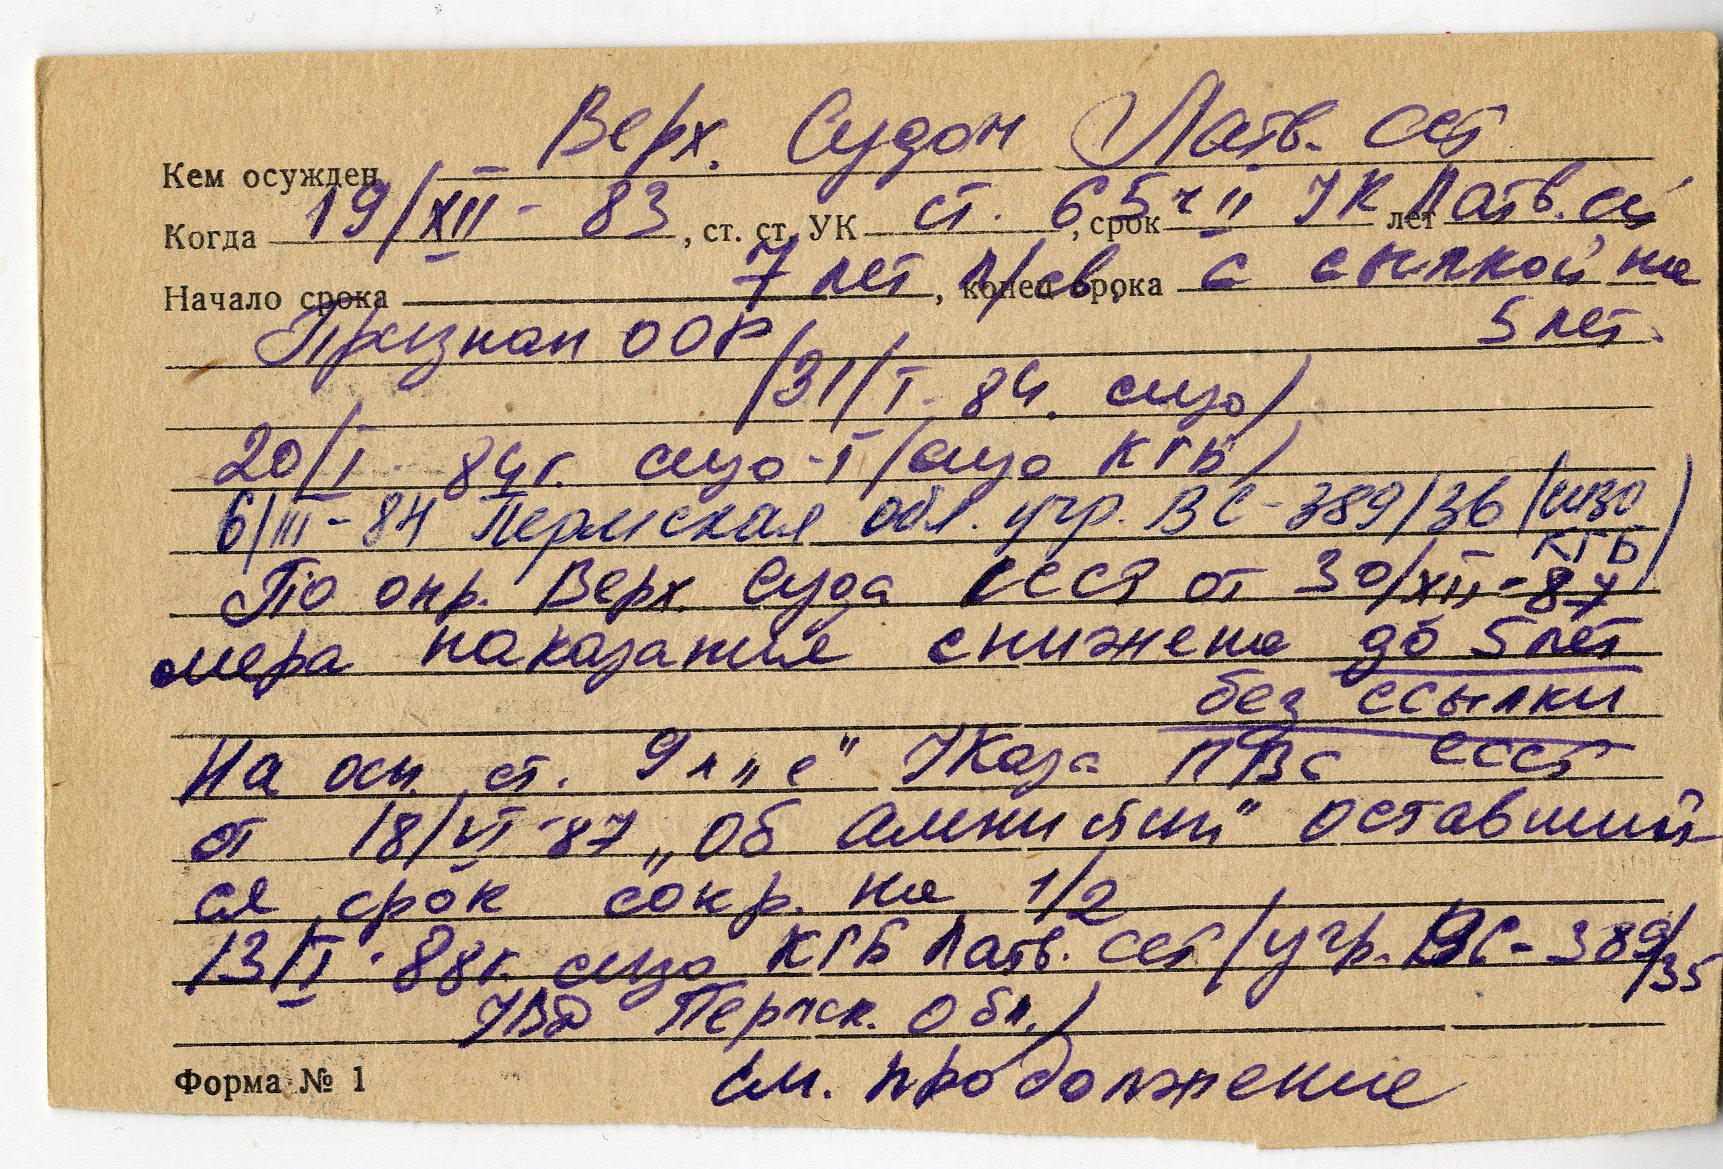 Верх. Судом Латв. ССР
Кем осужден
Когда 19/XII-83, ст. ст. УК ст. 65 ч II, срок УК лет Латв. ССР
Начало срока 7 лет л/св, конец срока с ссылкой на
Признан ООР 5 лет.
(31/I-84. сизо)
20/I-84г. сизо-1 (сизо КГБ)
6/III-84 Пермская обл. учр. ВС-389/36 (сизо КГБ)
По опр. Верх. Суда СССР от 30/XII-87
мера наказания снижена до 5 лет
без ссылки
На осн. ст. 9 п „е" Указа ПВС СССР
от 18/VI-87 „Об амнистии" оставший
ся срок сокр. на 1/2
13/II-88г. сизо КГБ Латв. ССР (учр. ВС-389/35
УВД Пермск. обл.)
Форма № 1 см. продолжение